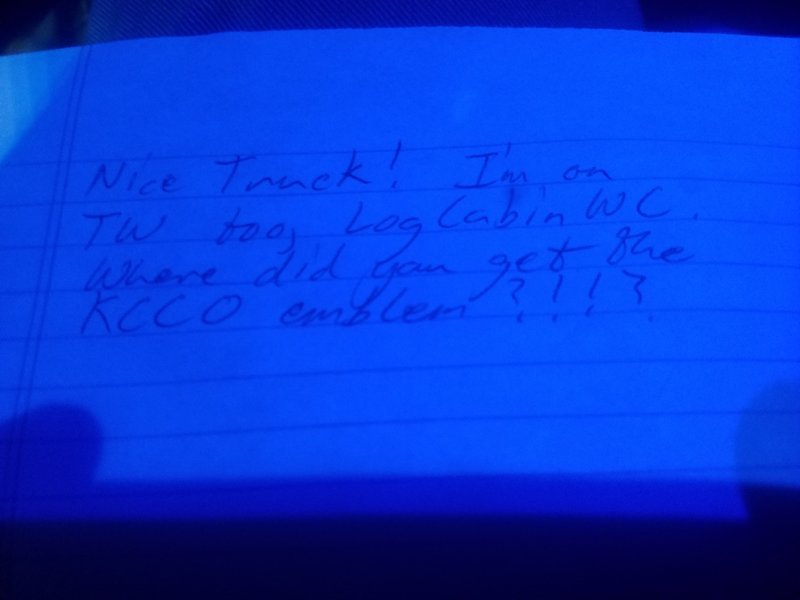 Nice Truck! I'm on
TW too, LogCabinWC.
Where did you get the
KCCO emblem?!!?